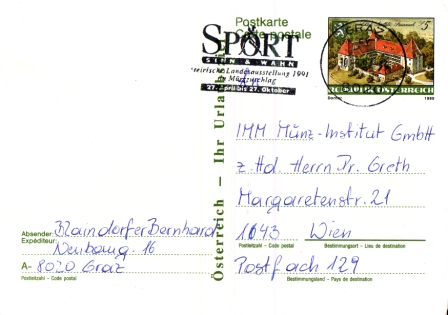 Postkarte
Carte postale
SPORT
SINN & WAHN
steirische Landesausstellung 1991
in Mürzzuschlag
27. April bis 27. Oktober
GRAZ
5
REPUBLIK ÖSTERREICH
1990
Österreich – Ihr Urlaub
IMM Münz-Institut GmbH
z. Hd. Herrn Dr. Greth
Margaretenstr. 21
1043 Wien
Postleitzahl – Code postal Bestimmungsort – Lieu de destination
Postfach 129
Bestimmungsland – Pays de destination
Absender: Maindorfer Bernhard
Expéditeur:
Neubaug. 16
A- 8020 Graz
Postleitzahl – Code postal